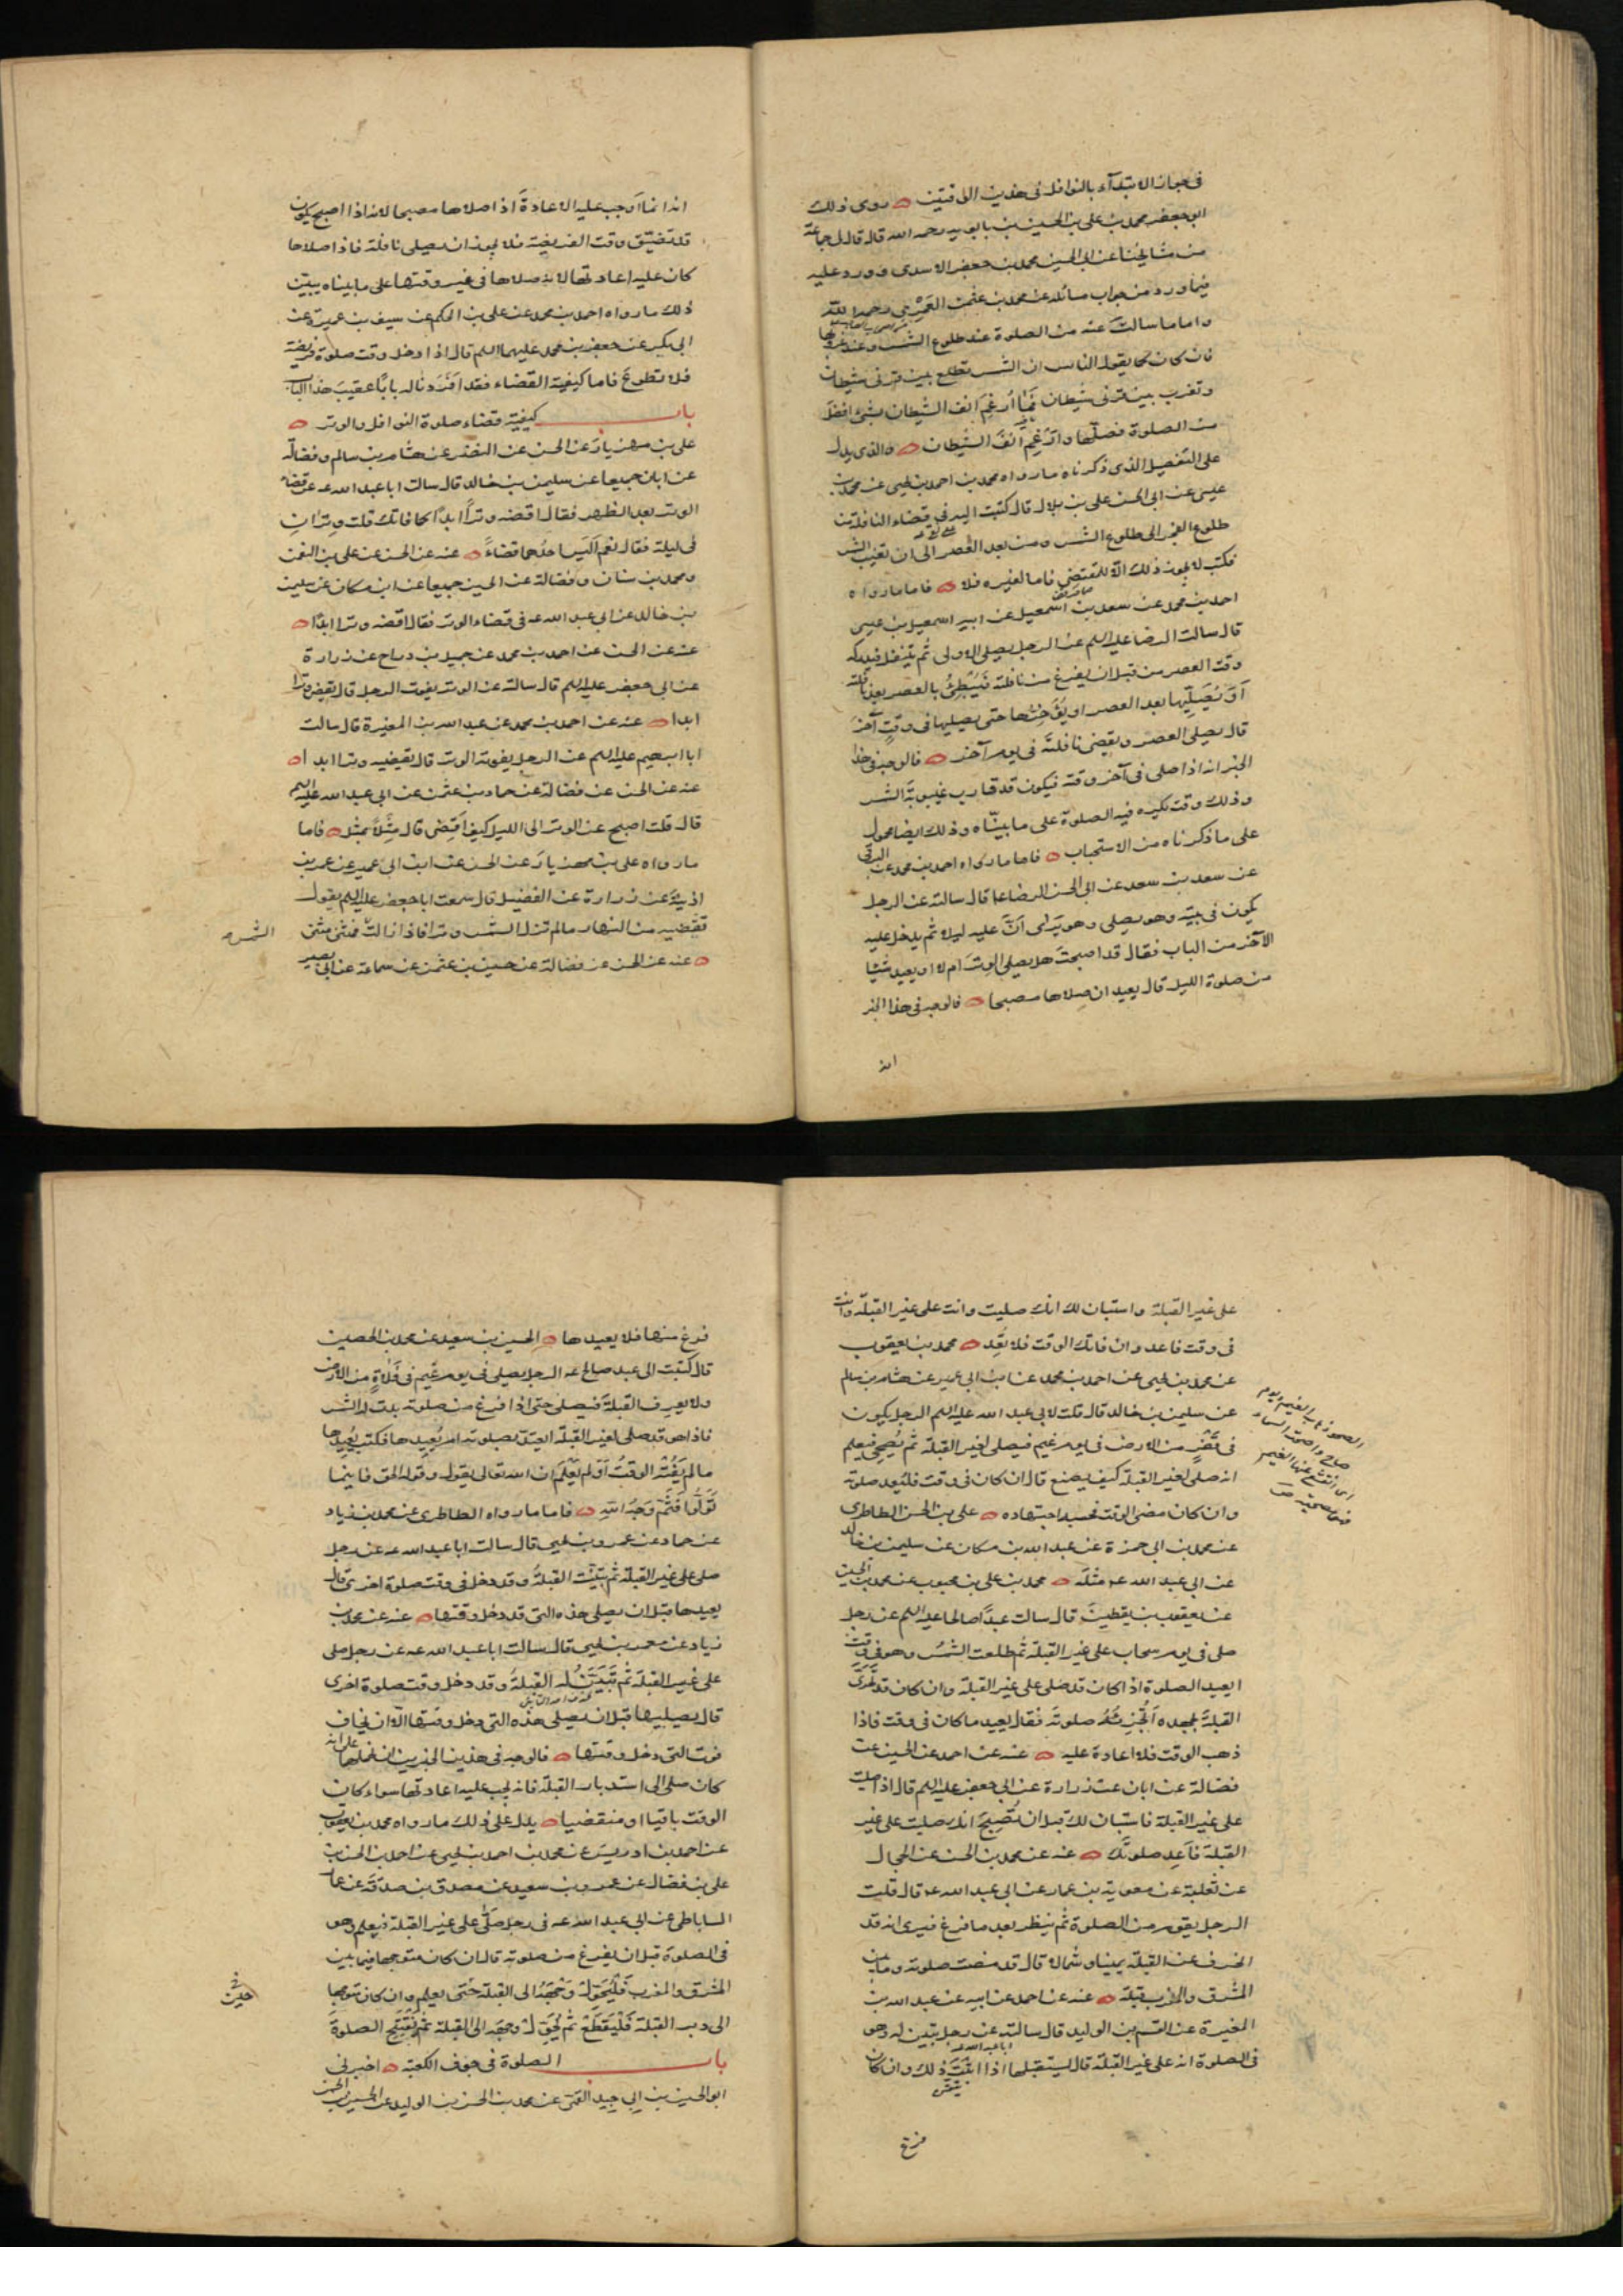 في جواز الابتداء بالنوافل في هذين الوقتين روى ذلك
ابو جعفر محمد بن على بن الحسين بن بابويه رحمه الله قال قال لى جماعة
من مشايخنا عن ابى الحسين محمد بن جعفر الاسدى ره ورد عليه
فيما ورد من جواب مسائله عن محمد بن عثمن العمرى رحمه الله
واما ما سالت عنه من الصلوة عند طلوع الشمس وعند غروبها
فان كان كما يقوله الناس ان الشمس تطلع بين قرنى شيطان
وتغرب بين قرنى شيطان فما ارغم انف الشيطان بشئ افضل
من الصلوة فصلها وارغم انف الشيطان والذى يدل
على التفصيل الذى ذكرناه ما رواه محمد بن احمد بن يحيى عن محمد بن
عيسى عن ابى الحسن على بن بلال قال كتبت اليه فى قضاء النافلة من
طلوع الفجر الى طلوع الشمس ومن بعد العصر الى ان تغيب الشمس
فكتب لا يجوز ذلك الا للمقتضى فاما لغيره فلا فاما ما رواه
احمد بن محمد عن سعد بن اسمعيل عن ابيه اسمعيل بن عيسى
قال سالت الرضا عليه السلم عن الرجل يصلى الاولى ثم يتنفل فيدركه
وقت العصر من قبل ان يفرغ من نافلته فيبطئ بالعصر بعد نافلته
او يصليها بعد العصر او يؤخرها حتى يصليها فى وقت آخر
قال يصلى العصر ويقضى نافلته فى يوم آخر فالوجه فى هذا
الخبر انه اذا صلى فى آخر وقته فيكون قد قارب غيبوبة الشمس
وذلك وقت يكره فيه الصلوة على ما بيناه وذلك ايضا محمول
على ما ذكرناه من الاستحباب فاما ما رواه احمد بن محمد عن البرقى
عن سعد بن سعد عن ابى الحسن الرضا عا قال سالته عن الرجل
يكون فى بيته وهو يصلى وهو يرى ان عليه ليلا ثم يدخل عليه
الآخر من الباب فقال قد اصبحت هل يصلى الوتر ام لا او يعيد شيئا
من صلوة الليل قال يعيد ان صلاها مصبحا فالوجه فى هذا الخبر
انه
انه انما اوجب عليه الاعادة اذا صلاها مصبحا لانه اذا اصبح يكون
قد تضيق وقت الفريضة فلا يجوز ان يصلى نافلة فاذا صلاها
كان عليه اعادتها لانه صلاها فى غير وقتها على ما بيناه يبين
ذلك ما رواه احمد بن محمد عن على بن الحكم عن سيف بن عميرة عن
ابى بكر عن جعفر بن محمد عليهما السلم قال اذا دخل وقت صلوة فريضة
فلا تطوع فاما كيفية القضاء فقد افردنا له بابا عقيب هذا الباب
باب كيفية قضاء صلوة النوافل والوتر
على بن مهزيار عن الحسن عن النضر عن هشام بن سالم وفضالة
عن ابان جميعا عن سليمن بن خالد قال سالت ابا عبد الله عه عن قضاء
الوتر بعد الظهر فقال اقضه وترا ابدا كما فاتك قلت وتران
فى ليلة فقال نعم اليس احدهما قضاء عنه عن الحسن عن على بن النعمن
ومحمد بن سنان وفضالة عن الحسين جميعا عن ابن مسكان عن سليمن
بن خالد عن ابى عبد الله عه فى قضاء الوتر فقال اقضه وترا ابدا
عنه عن الحسن عن احمد بن محمد عن جميل بن دراج عن زرارة
عن ابى جعفر عليه السلم قال سالته عن الوتر يفوت الرجل قال يقضى وترا
ابدا عنه عن احمد بن محمد عن عبد الله بن المغيرة قال سالت
ابا ابرهيم عليه السلم عن الرجل يفوته الوتر قال يقضيه وترا ابدا
عنه عن الحسن عن فضالة عن حماد بن عثمن عن ابى عبد الله عليه السلم
قال قلت اصبح عن الوتر الى الليل كيف اقضى قال مثلا بمثل فاما
ما رواه على بن مهزيار عن الحسن عن ابن ابى عمير عن عمر بن
اذينة عن زرارة عن الفضيل قال سمعت ابا جعفر عليه السلم يقول
تقضيه من النهار ما لم تزل الشمس وترا فاذا زالت فمثنى مثنى
الشمس
عنه عن الحسن عن فضالة عن حسين بن عثمن عن سماعة عن ابى بصير
على غير القبلة واستبان لك انك صليت وانت على غير القبلة وانت
فى وقت فاعد وان فاتك الوقت فلا تعد محمد بن يعقوب
عن محمد بن يحيى عن احمد بن محمد عن ابن ابى عمير عن هشام بن سالم
عن سليمن بن خالد قال قلت لابى عبد الله عليه السلم الرجل يكون
فى قفر من الارض فى يوم غيم فيصلى لغير القبلة ثم يصحى فيعلم
انه صلى لغير القبلة كيف يصنع قال ان كان فى وقت فليعد صلوته
وان كان مضى الوقت فحسبه اجتهاده على بن الحسن الطاطرى
عن محمد بن ابى حمزة عن عبد الله بن مسكان عن سليمن بن خالد
عن ابى عبد الله عه مثله محمد بن على بن محبوب عن محمد بن الحسين
عن يعقوب بن يقطين قال سالت عبدا صالحا عليه السلم عن رجل
صلى فى يوم سحاب على غير القبلة ثم طلعت الشمس وهو فى وقت
ايعيد الصلوة اذا كان قد صلى على غير القبلة وان كان قد تحرى
القبلة بجهده اتجزئه صلوته فقال يعيد ما كان فى وقت فاذا
ذهب الوقت فلا اعادة عليه عنه عن احمد عن الحسين عن
فضالة عن ابان عن زرارة عن ابى جعفر عليه السلم قال اذا صليت
على غير القبلة فاستبان لك قبل ان تصبح انك صليت على غير
القبلة فاعد صلوتك عنه عن محمد بن الحسن عن الحجال
عن ثعلبة عن معوية بن عمار عن ابى عبد الله عه قال قلت
الرجل يقوم من الصلوة ثم ينظر بعد ما فرغ فيرى انه قد
انحرف عن القبلة يمينا وشمالا قال قد مضت صلوته وما بين
المشرق والمغرب قبلة عنه عن احمد عن ابيه عن عبد الله بن
المغيرة عن القسم بن الوليد قال سالته عن رجل تبين له وهو
فى الصلوة انه على غير القبلة قال يستقبلها اذا اثبت ذلك وان كان
فرغ
الصحو ذهاب الغيم يوم
صاح واصحت السماء
اى انقشع عنها الغيم
فرغ منها فلا يعيدها الحسين بن سعيد عن محمد بن الحصين
قال كتبت الى عبد صالح عه الرجل يصلى فى يوم غيم فى فلاة من الارض
ولا يعرف القبلة فيصلى حتى اذا فرغ من صلوته بدت له الشمس
فاذا هو قد صلى لغير القبلة ايعتد بصلوته ام يعيدها فكتب يعيدها
ما لم يفته الوقت اولم يعلم ان الله تعالى يقول وقوله الحق فاينما
تولوا فثم وجه الله فاما ما رواه الطاطرى عن محمد بن زياد
عن حماد عن عمرو بن يحيى قال سالت ابا عبد الله عه عن رجل
صلى على غير القبلة ثم تبينت القبلة وقد دخل فى وقت صلوة اخرى قال
يعيدها قبل ان يصلى هذه التى قد دخل وقتها عنه عن محمد بن
زياد عن معمر بن يحيى قال سالت ابا عبد الله عه عن رجل صلى
على غير القبلة ثم تبينت له القبلة وقد دخل وقت صلوة اخرى
قال يصليها قبل ان يصلى هذه التى دخل وقتها الا ان يخاف
فوت التى دخل وقتها فالوجه فى هذين الخبرين ان نحملهما على انه
كان صلى الى استدبار القبلة فانه يجب عليه اعادتها سواء كان
الوقت باقيا او منقضيا يدل على ذلك ما رواه محمد بن يعقوب
عن احمد بن ادريس عن محمد بن احمد بن يحيى عن احمد بن الحسن بن
على بن فضال عن عمرو بن سعيد عن مصدق بن صدقة عن عمار
الساباطى عن ابى عبد الله عه فى رجل صلى على غير القبلة فيعلم وهو
فى الصلوة قبل ان يفرغ من صلوته قال ان كان متوجها فيما بين
المشرق والمغرب فليحول وجهه الى القبلة حتى يعلم وان كان متوجها
حين
الى دبر القبلة فليقطع ثم يحول وجهه الى القبلة ثم يفتتح الصلوة
باب الصلوة فى جوف الكعبة اخبرنى
ابو الحسين بن ابى جيد القمى عن محمد بن الحسن بن الوليد عن الحسين بن الحسن